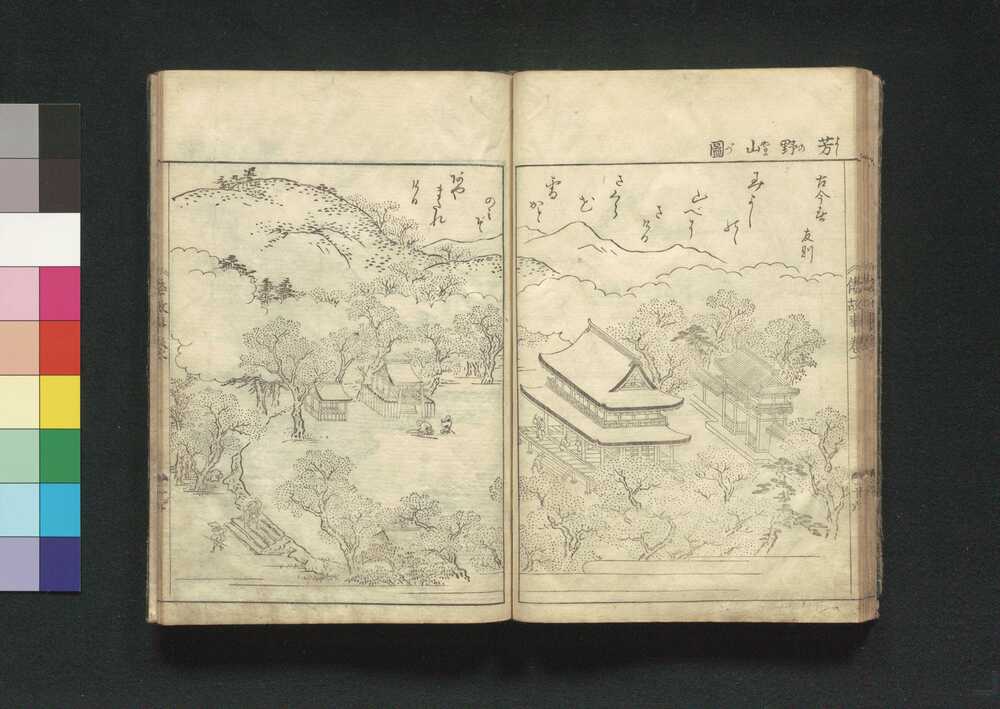 芳野山圖
古今春
友則
みよし
のゝ
山べに
さける
さくら
花
雪かと
のみぞ
あや
またれ
ける